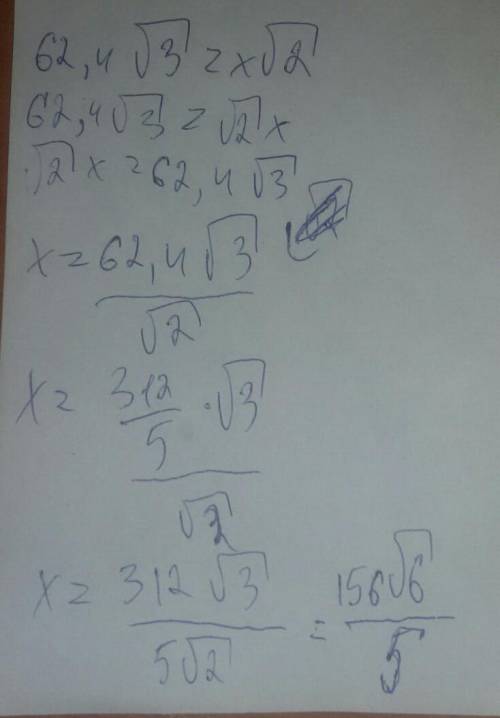 62,4 √3 = x√2
62,4√3 = √2 x
√2 x = 62,4 √3
x = 62,4 √3 / √2
x = 312/5 · √3 / √2
x = 312 √3 / 5√2 = 156√6 / 5